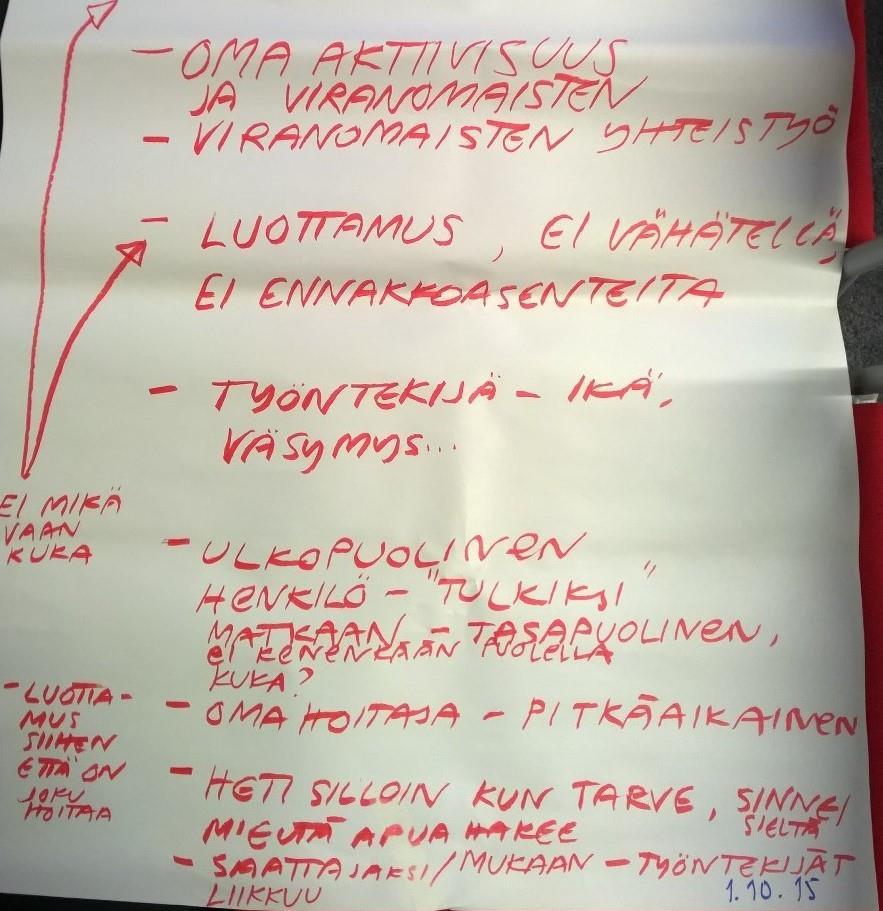 - OMA AKTIIVISUUS
JA VIRANOMAISTEN
- VIRANOMAISTEN YHTEISTYÖ
- LUOTTAMUS, EI VÄHÄTELLÄ,
EI ENNAKKOASENTEITA
- TYÖNTEKIJÄ - IKÄ,
VÄSYMYS...
EI MIKÄ
VAAN
KUKA
- ULKOPUOLINEN
HENKILÖ - "TULKIKSI"
MATKAAN - TASAPUOLINEN,
EI KENENKÄÄN PUOLELLA
KUKA?
- LUOTTA-
MUS
SIIHEN
ETTÄ ON
JOKU
HOITAA
- OMA HOITAJA - PITKÄAIKAINEN
- HETI SILLOIN KUN TARVE, SINNE/
SIELTÄ
MISTÄ APUA HAKEE
- SAATTAJAKSI/MUKAAN - TYÖNTEKIJÄT
LIIKKUU
1.10.15